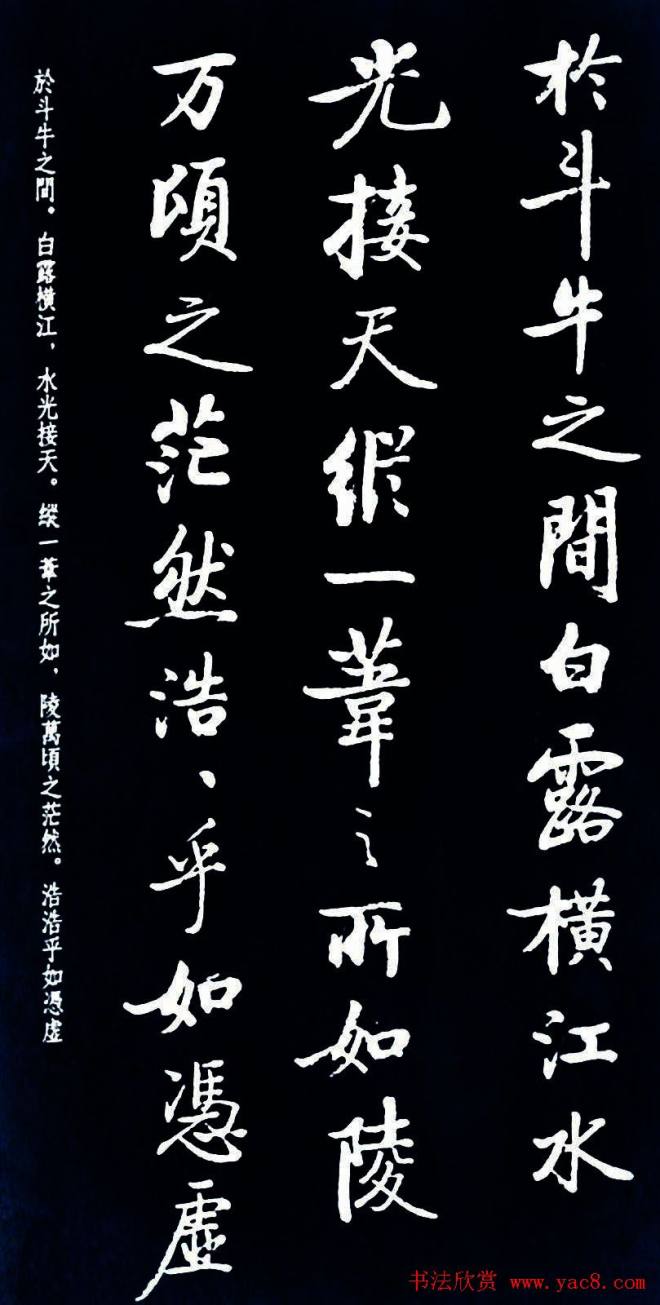 於斗牛之間白露橫江水
光接天縱一葦之所如陵
万頃之茫然浩、乎如憑虛
於斗牛之間。白露橫江，水光接天。縱一葦之所如，陵萬頃之茫然。浩浩乎如憑虛
书法欣赏 www.yac8.com